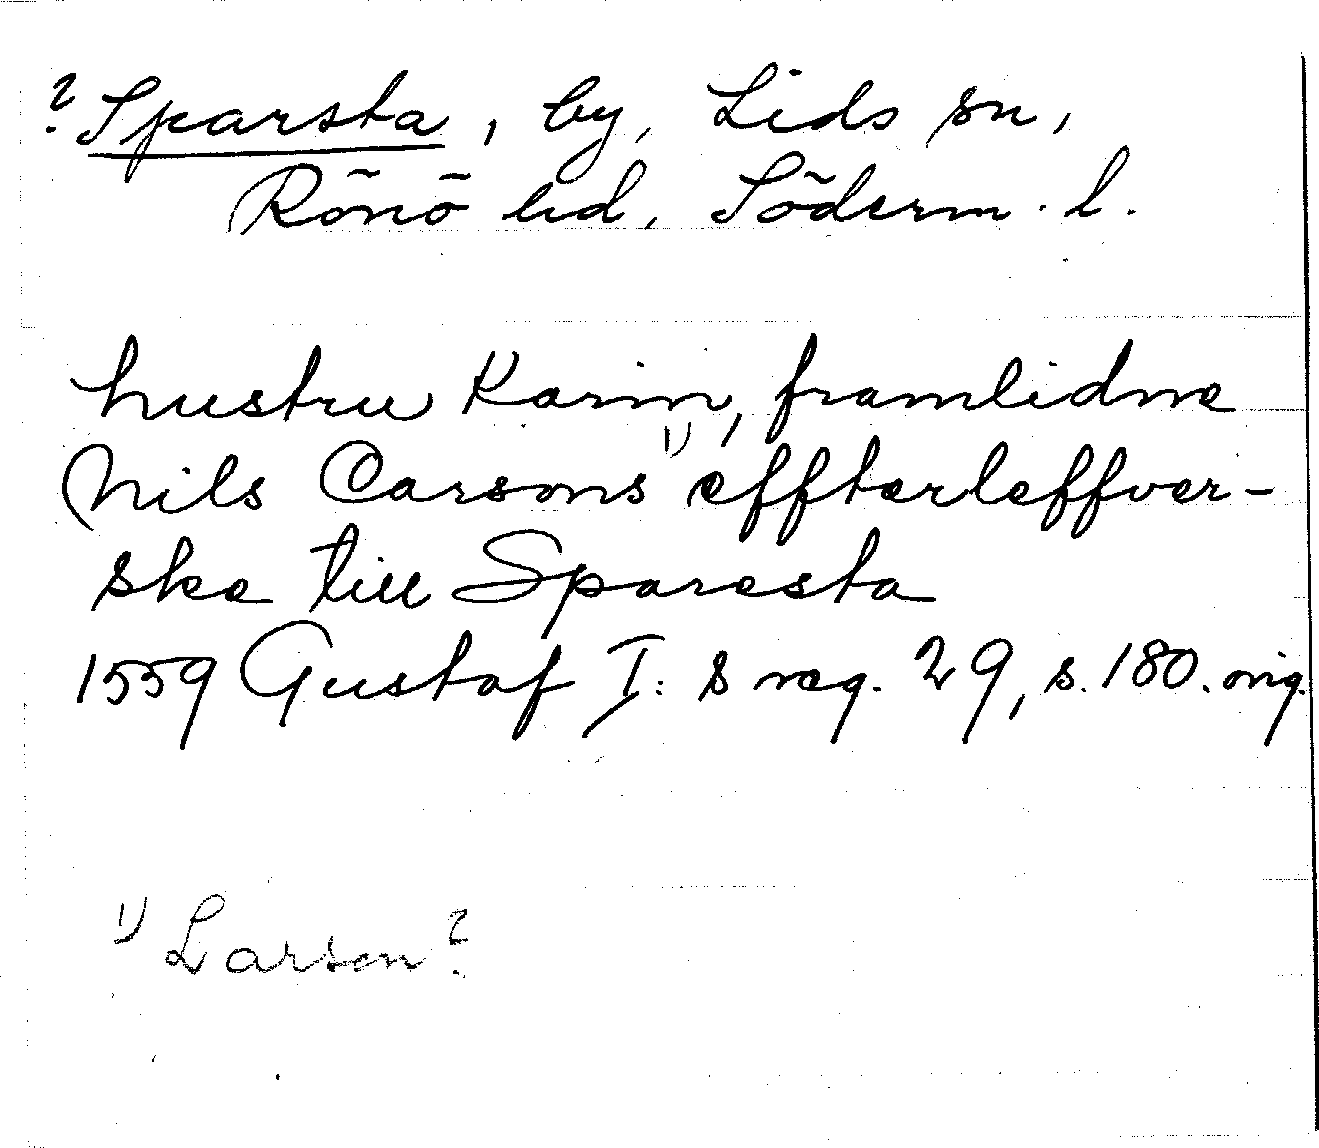 ? Sparsta, by, Lids sn,
Rönö hd, Söderm. l.
hustru Karin, framlidne
Nils Carsons ¹⁾ effterleffver-
ske till Sparesta
1559 Gustaf I:s reg. 29, s. 180. orig.
¹⁾ Larson?